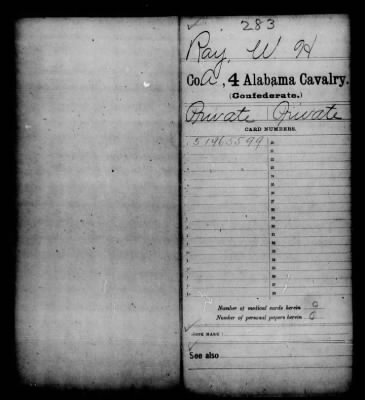 283
Ray, W H
Co. A, 4 Alabama Cavalry.
(Confederate.)
Private Private
CARD NUMBERS.
51965599
Number of medical cards herein 0
Number of personal papers herein 0
BOOK MARK:
See also